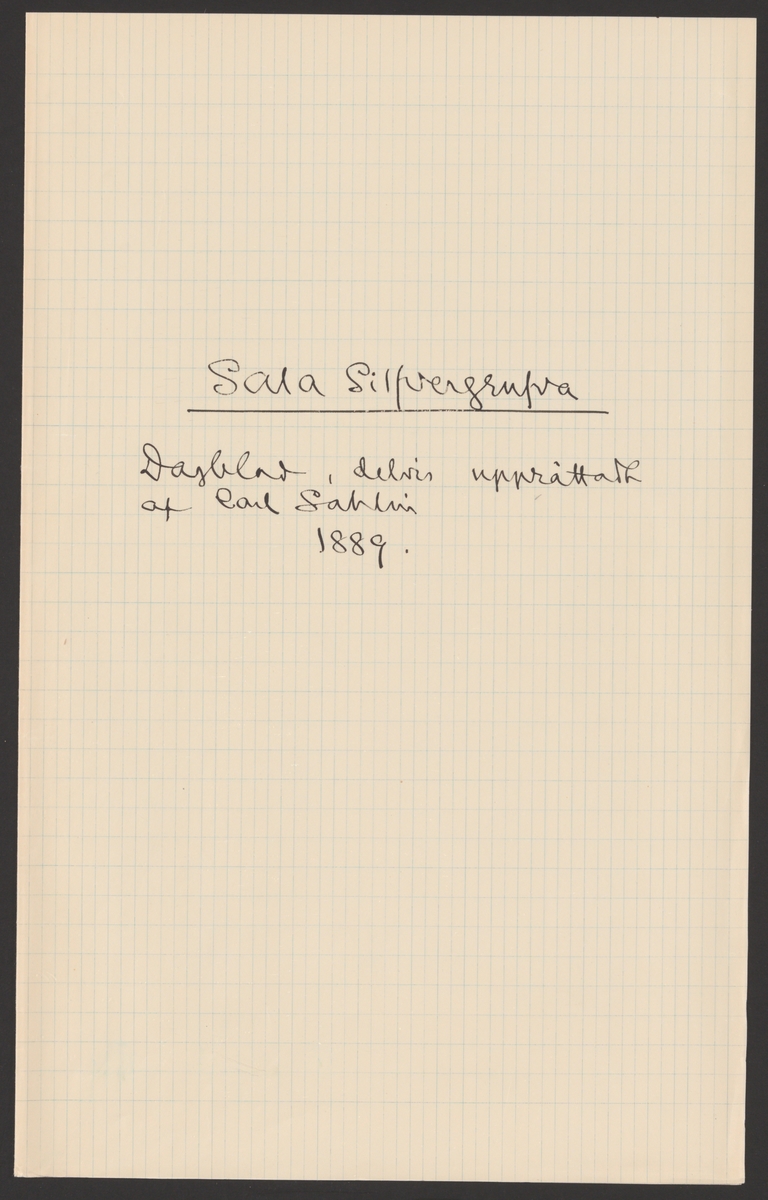 Sala Silfvergrufva
Dagblad, delvis upprättadt
af Carl Sahlin
1889.